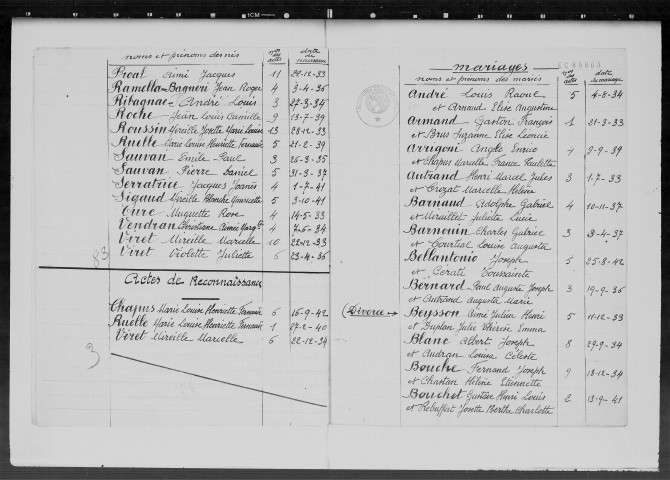 noms et prénoms des nés nos des actes date de naissance
Proal Aimé Jacques 11 20-12-33
Ramella-Bagneri Jean Roger 4 3-4-36
Ribagnac André Louis 3 27-3-34
Roche Jean Louis Camille 9 13-7-39
Roussin Mireille Josette Marie Louise 13 28-12-33
Ruelle Marie Louise Henriette Fernande 5 21-2-39
Sauvan Emile Paul 3 26-3-35
Sauvan Pierre Daniel 5 31-3-37
Serratrice Jacques 4 1-7-41
Sigaud Mireille Blanche 5 3-10-41
Ture Huguette Rose 4 14-5-33
Vendran Christiane Aimée 4 7-6-34
Viret Mireille Marcelle 10 22-12-33
Viret Violette Juliette 6 23-4-36
83
Actes de Reconnaissance
Chapus Marie Louise Henriette 6 16-9-42
Ruelle Marie Louise Henriette 1 27-2-40
Viret Mireille Marcelle 6 22-12-34
3
mariages
noms et prénoms des mariés nos des actes date du mariage
André Louis Raoul 5 4-8-34
et Arnaud Elise Augustine
Armand Gaston François 1 21-3-33
et Brus Suzanne Elise Léonie
Arrigoni Angelo Enrico 4 9-9-39
et Chapus Marcelle France Paulette
Autrand Henri Marcel Jules 3 1-7-33
et Crozat Marcelle Hélène
Barnaud Adolphe Gabriel 4 10-11-37
et Juliette Lucie
Barnouin Charles Gabriel 3 3-4-37
et Courtial Louise Augusta
Bellantonio Joseph 5 25-8-42
et Cérati Toussainte
Bernard Paul Auguste Joseph 3 19-9-36
et Autrand Augusta Marie
(Divorcé Beysson Aimé Julien Henri 5 11-12-33
et Duplan Julie Thérèse Emma
Blanc Albert Joseph 8 29-9-34
et Audran Louisa Céleste
Bouche Fernand Joseph 9 13-12-34
et Chastan Hélène Etiennette
Bouchet Gustave Henri Louis 2 13-9-41
et Rebuffat Josette Berthe Charlotte